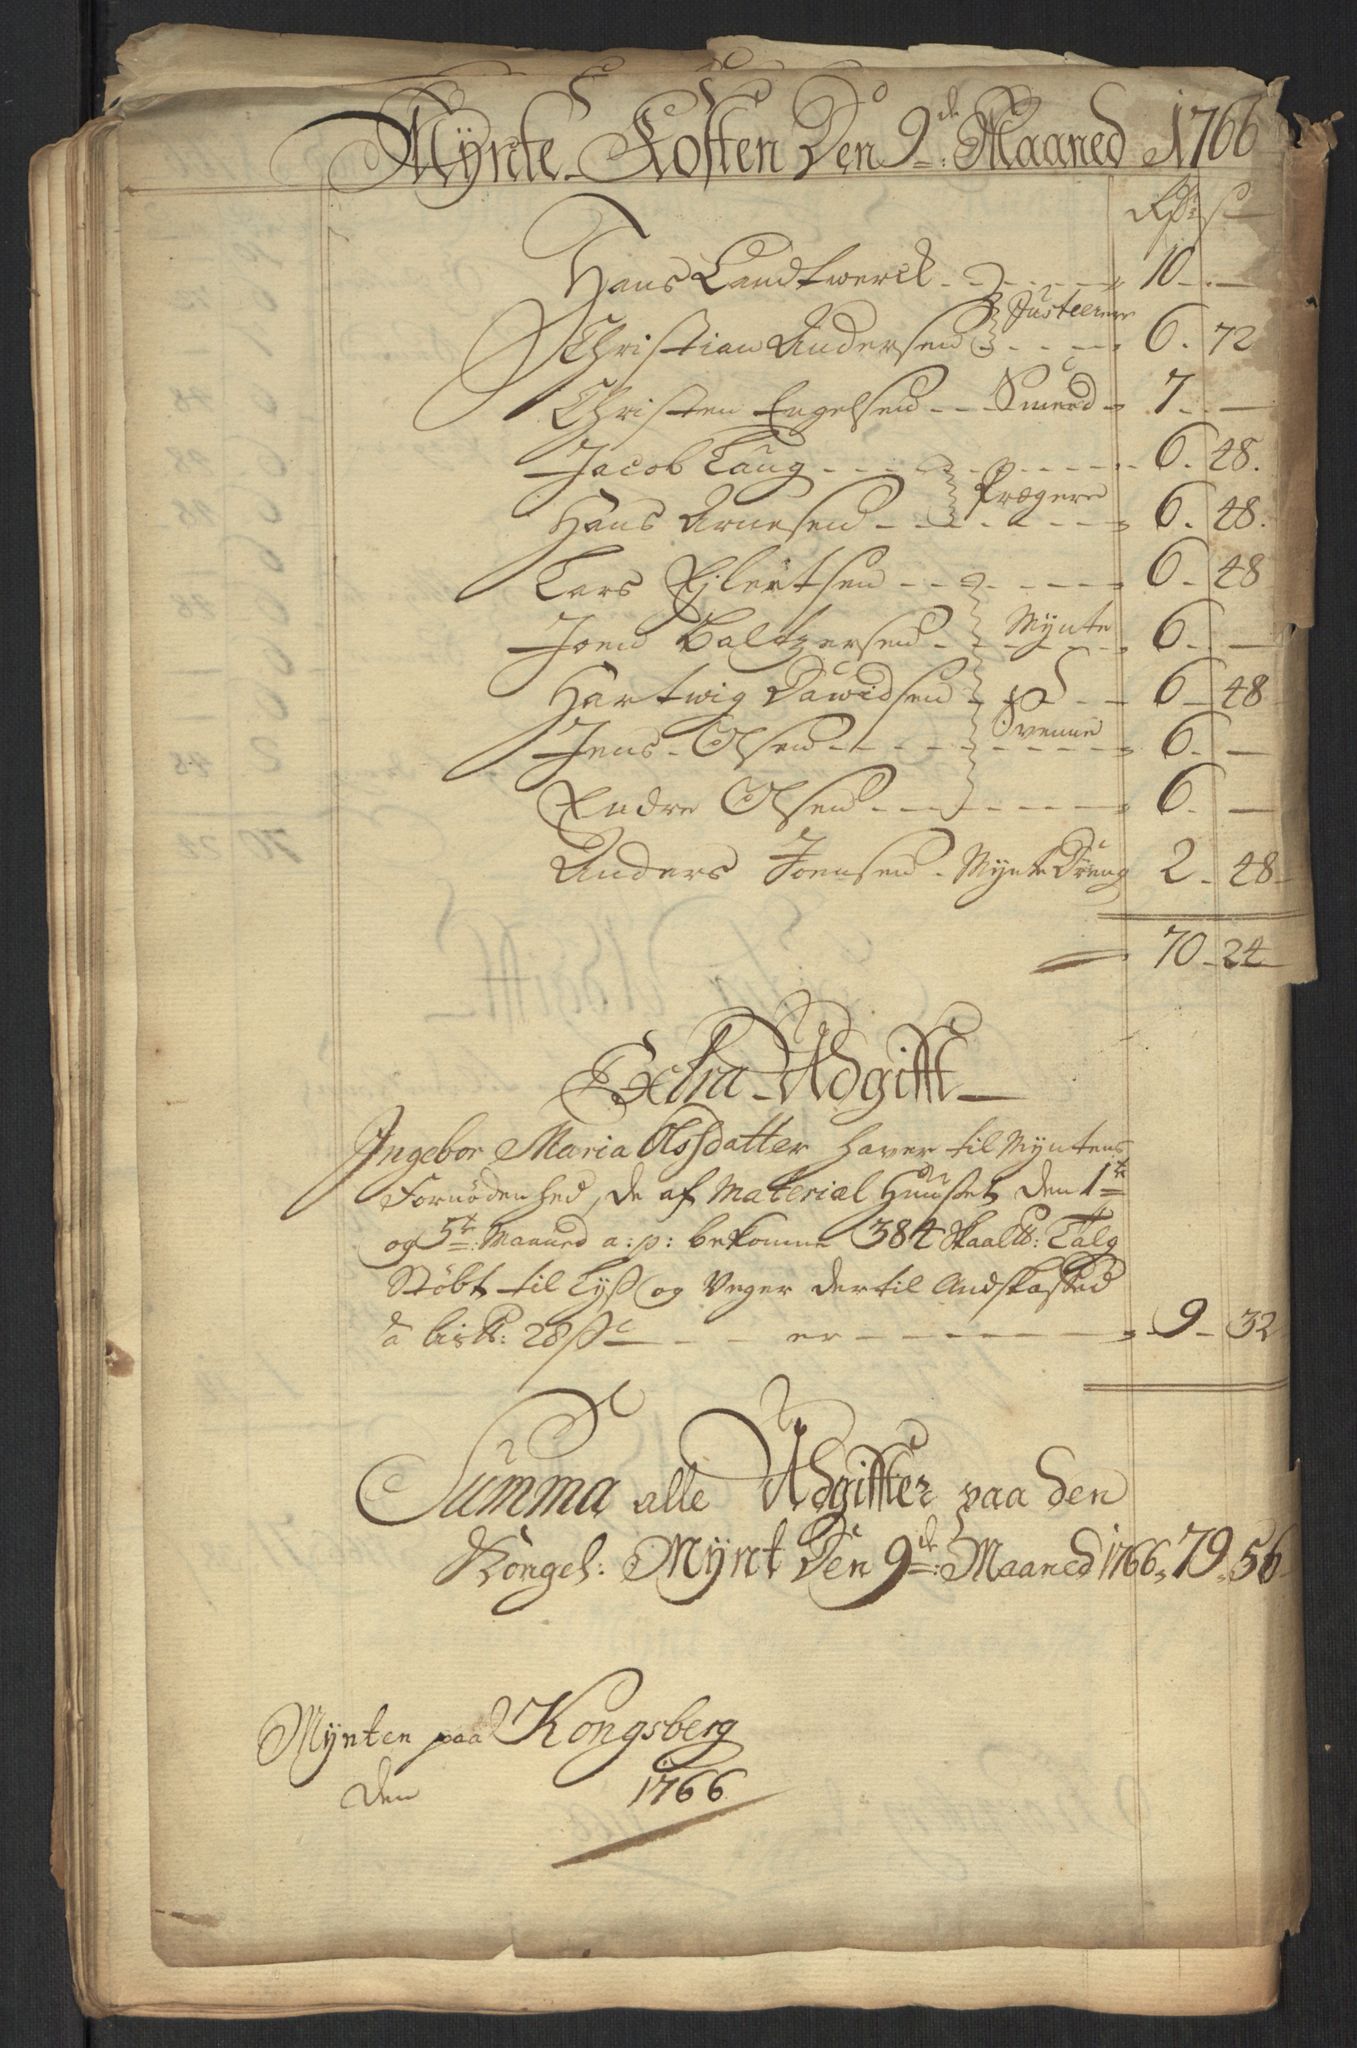 Mÿnte Kosten Den 9de: Maaned 1766
Rdr: s
Hans Landtwerck 10 . —
Justeerere
Christian Andersen 6. 72
Christen Engelsen Smed 7. —
Jacob Laug 6. 48.
Prægere
Hans Arnesen 6. 48.
Lars Ejlertsen 6. 48
Joen Baltzersen Mÿnte 6. —
Hartwig Dawidsen 6. 48
Jens Olsen Svenne 6. —
Endre Olsen 6. —
Anders Joensen Mÿnte Dreng 2. 48
70. 24
Extra Udgifft
Ingebor Maria Olsdatter haver til Myntens
Fornødenhed, de af Material Huuset den 1te
og 5te: Maaned a: p: bekomne 384 Skaal℔: Talg
Støbt til Lyß og Veger dertil Andskaffed
a bis℔: 28 ß er 9. 32
Summa alle Udgiffter paa den
Kongel: Mÿnt Den 9de: Maaned 1766. 79. 56
Mÿnten paa Kongsberg
den 1766